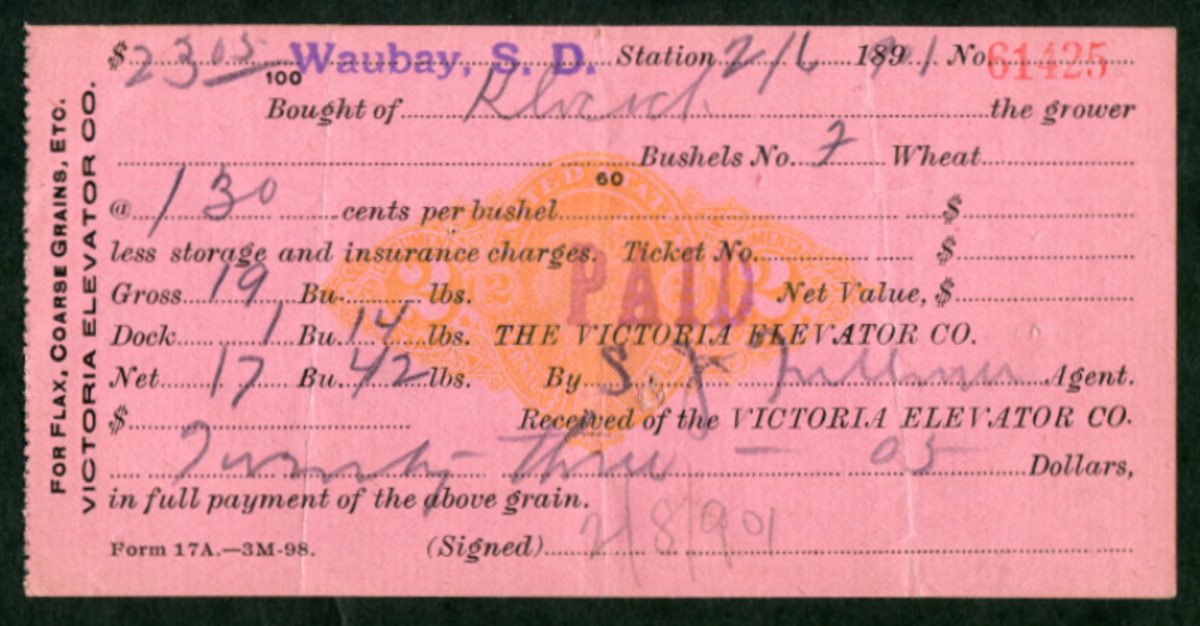 FOR FLAX, COARSE GRAINS, ETC.
VICTORIA ELEVATOR CO.
$ 23 05/100 Waubay, S. D. Station 2/6 189 901 No 61425
Bought of the grower
Bushels No. Wheat
60
@ 1 30 cents per bushel $
less storage and insurance charges. Ticket No. $
Gross 19 Bu. lbs. Net Value, $
PAID
2 2
Dock 1 Bu. 14 lbs. THE VICTORIA ELEVATOR CO.
Net 17 Bu. 42 lbs. By S. Agent.
$ Received of the VICTORIA ELEVATOR CO.
Twenty three — 05 Dollars,
in full payment of the above grain.
Form 17A.—3M-98. (Signed) 2/8/901